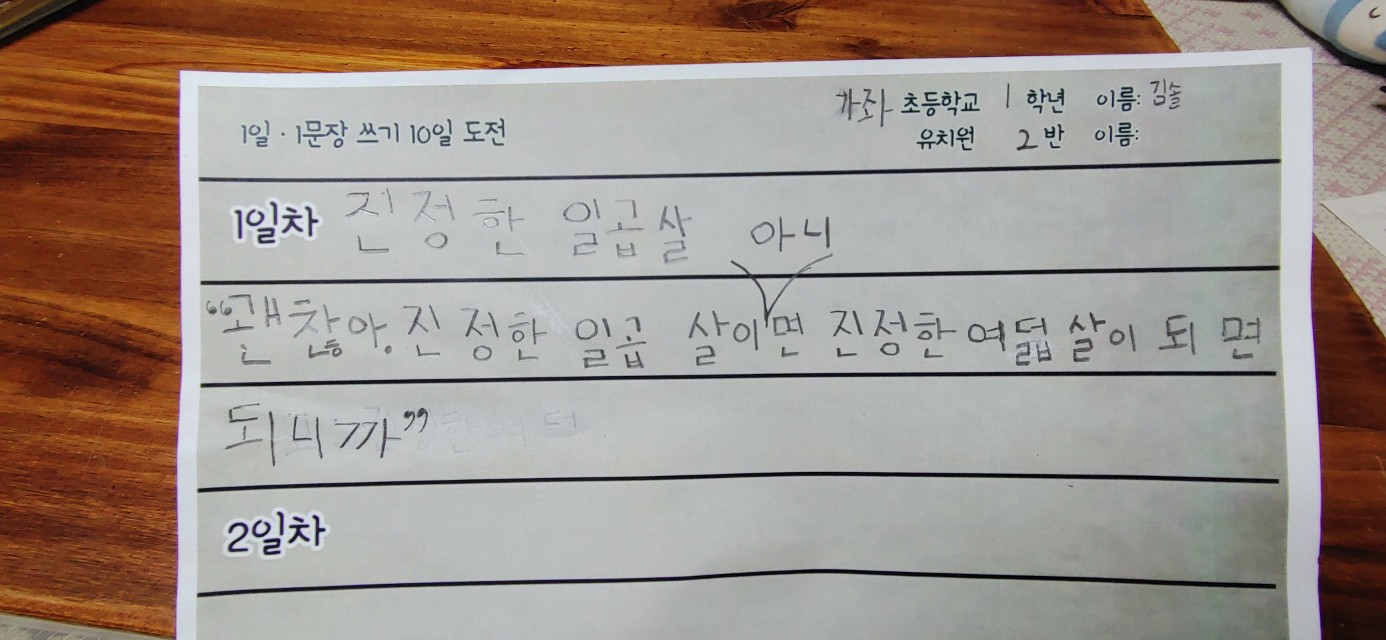 가좌 초등학교 1 학년 이름: 김솔
1일·1문장 쓰기 10일 도전
유치원 2 반 이름:
1일차 진정한 일곱살
아니
“괜찮아. 진정한 일곱 살이면 진정한 여덟살이 되면
되니까”
2일차